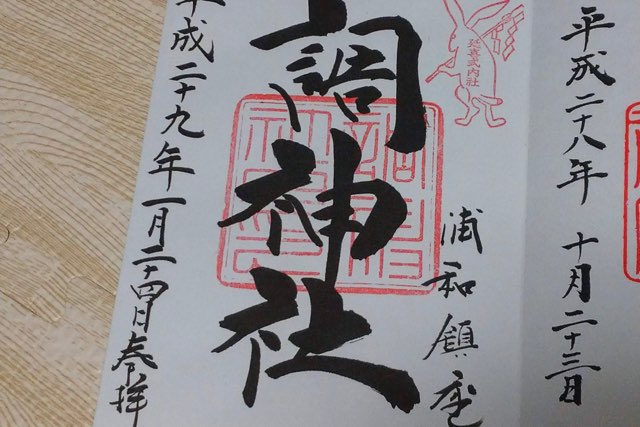 平成二十八年 十月二十三日
延喜式内社
浦和鎮座
調神社
平成二十九年一月二十四日奉拝